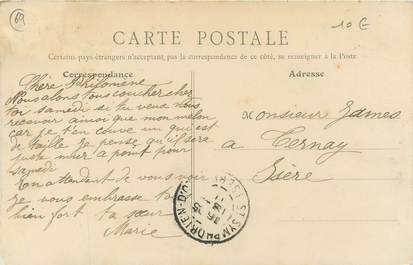 69
10€
CARTE POSTALE
Certains pays étrangers n'acceptant pas la correspondance de ce côté, se renseigner à la Poste
Correspondance
Adresse
Chère Philomene
Nous alons tous coucher chez
toi samedi si tu veux nous
recevoir ainsi que mon melon
car je t'en couve un qui est
de taille je pense qu'il sera
juste mur a point pour
Samedi
En attendant de vous voir
je vous embrasse tous
bien fort ta sœur
Marie
Monsieur James
a Ternay
Isère
ST SYMPHORIEN-D'O
ISÈRE